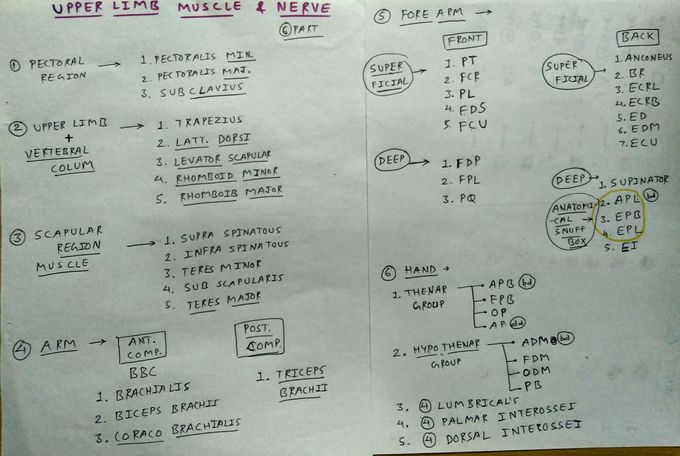 UPPER LIMB MUSCLE & NERVE
⑥ PART
① PECTORAL REGION → 1. PECTORALIS MIN.
2. PECTORALIS MAJ.
3. SUB CLAVIUS
② UPPER LIMB + VERTEBRAL COLUM → 1. TRAPEZIUS
2. LATT. DORSI
3. LEVATOR SCAPULAR
4. RHOMBOID MINOR
5. RHOMBOIB MAJOR
③ SCAPULAR REGION MUSCLE → 1. SUPRA SPINATOUS
2. INFRA SPINATOUS
3. TERES MINOR
4. SUB SCAPULARIS
5. TERES MAJOR
④ ARM →
ANT. COMP.
BBC
1. BRACHIALIS
2. BICEPS BRACHII
3. CORACO BRACHIALIS
POST. COMP.
1. TRICEPS BRACHII
⑤ FORE ARM →
FRONT
SUPER FICIAL → 1. PT
2. FCR
3. PL
4. FDS
5. FCU
DEEP → 1. FDP
2. FPL
3. PQ
BACK
SUPER FICIAL → 1. ANCONEUS
2. BR
3. ECRL
4. ECRB
5. ED
6. EDM
7. ECU
DEEP → 1. SUPINATOR
2. APL bd
3. EPB
4. EPL
5. EI
ANATOMI-CAL SNUFF BOX
⑥ HAND →
1. THENAR GROUP → APB bd
FPB
OP
AP dd
2. HYPOTHENAR GROUP → ADM bd
FDM
ODM
PB
3. ④ LUMBRICAL'S
4. ④ PALMAR INTEROSSEI
5. ④ DORSAL INTEROSSEI